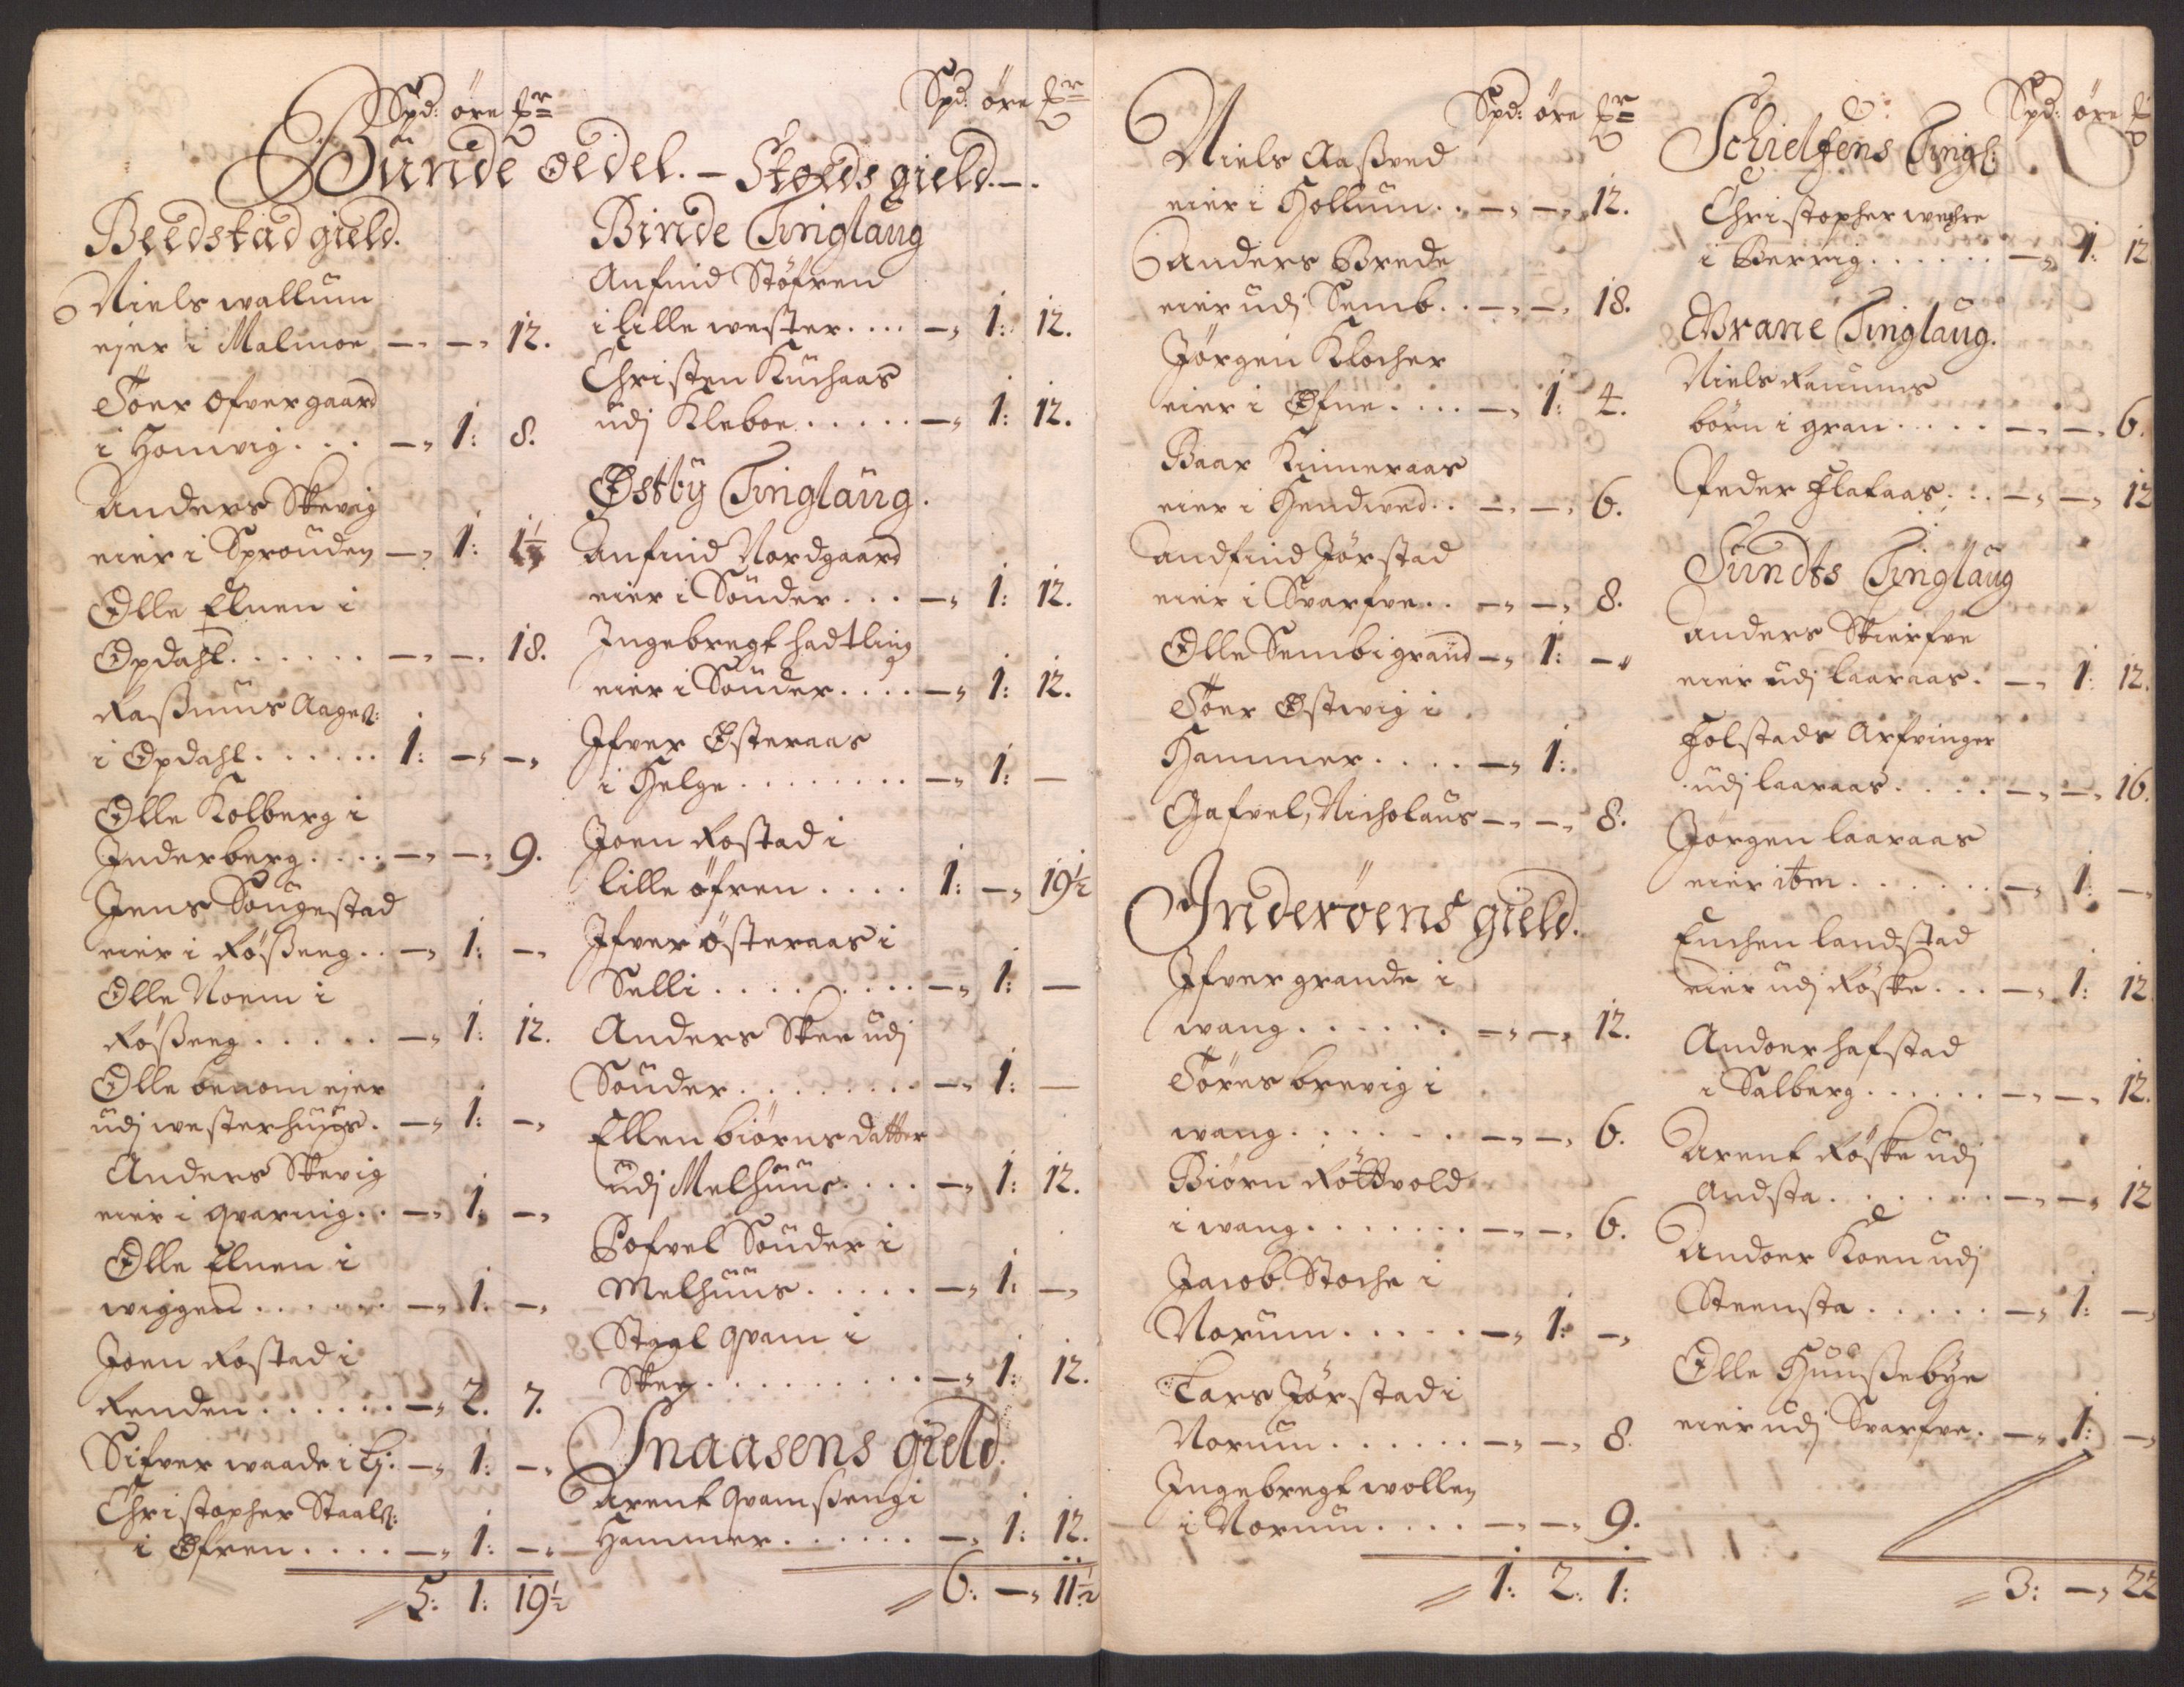 Spd: öre
Bünde oedel. – Stods gield. –.
Beedstad gield.
Niels wallum
ejer i Malmoe — — 12.
Töer ofvergaard
i Homvig . . . — 1: 8.
Anders Skevig
eier i Sprouden — 1: 1½
Olle Elnen i
Opdahl . . . . . . — — 18.
Rassmus Aages:
i Opdahl . . . . . . 1: — —
Olle Kolberg i
Inderberg . . . . — — 9.
Jens Sougestad
eier i Rösseng . . — 1: —
Olle Noem i
Rösseng . . . . . — 1: 12.
Olle benom ejer
udj westerhuus. — 1: —
Anders Skevig
eier i qvarnig . . — 1: —
Olle Elnen i
wiggen . . . . . . — 1: —
Joen Rostad i
Renden . . . . . . — 2. 7.
Sifver waade i — 1: —
Christopher Staals:
i Øfren . . . . — 1: —
5: 1: 19½
Spd: öre
Binde Tinglaug
Anfind Stöfren
i lille wester . . . . — 1: 12.
Christen Küchaas
udj Kleboe . . . . . — 1: 12.
Østby Tinglaug.
Anfind Nordgaard
eier i Sönder . . . — 1: 12.
Ingebregt hadtling
eier i Sönder . . . . — 1: 12.
Ifver Østeraas
i Helge . . . . . . . . — 1: —
Joen Rostad i
lille öfren . . . . 1: — 19½
Ifver österaas i
Selli . . . . . . . . . — 1: —
Anders Skee udj
Sönder . . . . . . . . — 1: —
Ellen biörns datter
udj Melhuus . . . . — 1: 12.
Pofvel Sönder i
Melhuus . . . . . — 1: —
Staal qvam i
Skey . . . . . . . . . — 1: 12.
Snaasens gield.
Arent qvamsseng i
Hammer . . . . . . — 1: 12.
6: — 11½
Spd: öre
Niels Aassved
eier i Hollum . . — — 12.
Anders Brede
eier udj Semb . . — — 18.
Jörgen Klocher
eier i Øfne . . . . — 1: 4.
Baar Kimeraas
eier i Hendved . . — — 6.
Andfind Jörstad
eier i Svarfve . . — — 8.
Olle Semb i grand — 1: —
Töer Østvig i
Hammer . . . . — 1:
Gafvel, Nicholaus — — 8.
Inderöens gield.
Ifver grande i
wang . . . . . . — — 12.
Töres brevig i
wang . . . . . . — — 6.
Biörn Röttvold
i wang . . . . . . . — — 6.
Jacob Stoche i
Norum . . . . . — 1: —
Lars Jörstad i
Norum . . . . . . — — 8.
Ingebregt wollen
i Norum . . . . — — 9.
1: 2: 1:
Spd: öre
Schielfens Tingl:
Christopher wehre
i Berrig . . . . . . — 1: 12
Qvrane Tinglaug.
Niels Ranums
börn i gran . . . . . — — 6.
Peder Flataas . . . — — 12
Sundts Tinglaug
Anders Skierfve
eier udj laaraas . — 1: 12.
Folstads Arfvinger
udj laaraas . . . . — — 16.
Jörgen laaraas
eier ibm . . . . . . — 1: —
Enchen landstad
eier udj Röske . . . — 1: 12
Andoer hafstad
i Salberg . . . . . . — — 12.
Arent Röske udj
Andsta . . . . . . . — — 12
Andoer Koen udj
Steensta . . . . . — 1: —
Olle Huussebye
eier udj Svarfve . — 1: —
3: — 22